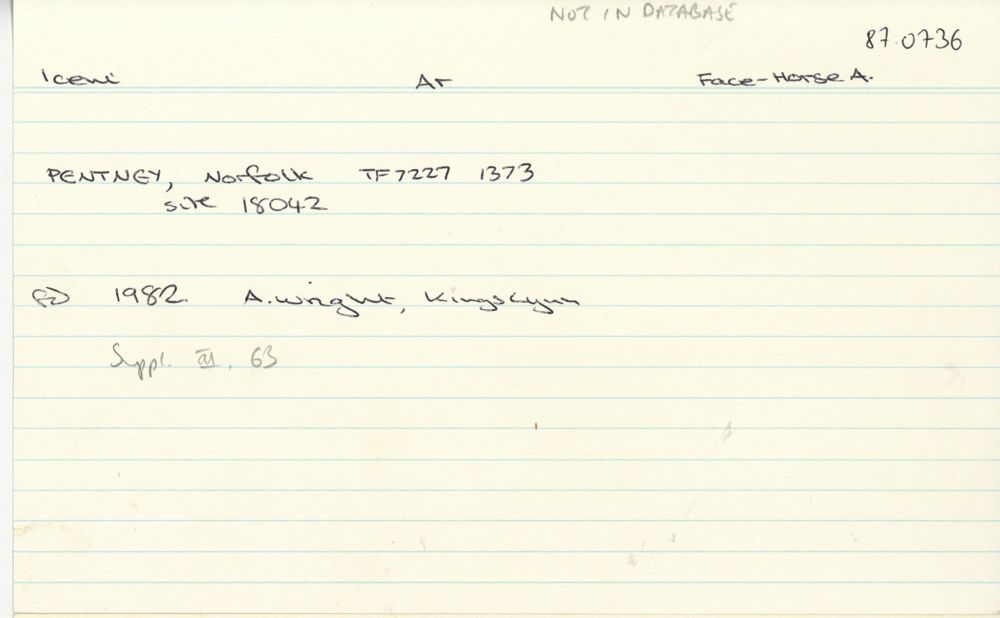 NOT IN DATABASE
87.0736
Iceni Ar Face-Horse A.
PENTNEY, Norfolk TF7227 1373
site 18042
fd 1982 A. Wright, Kings Lynn
Suppl. III. 63